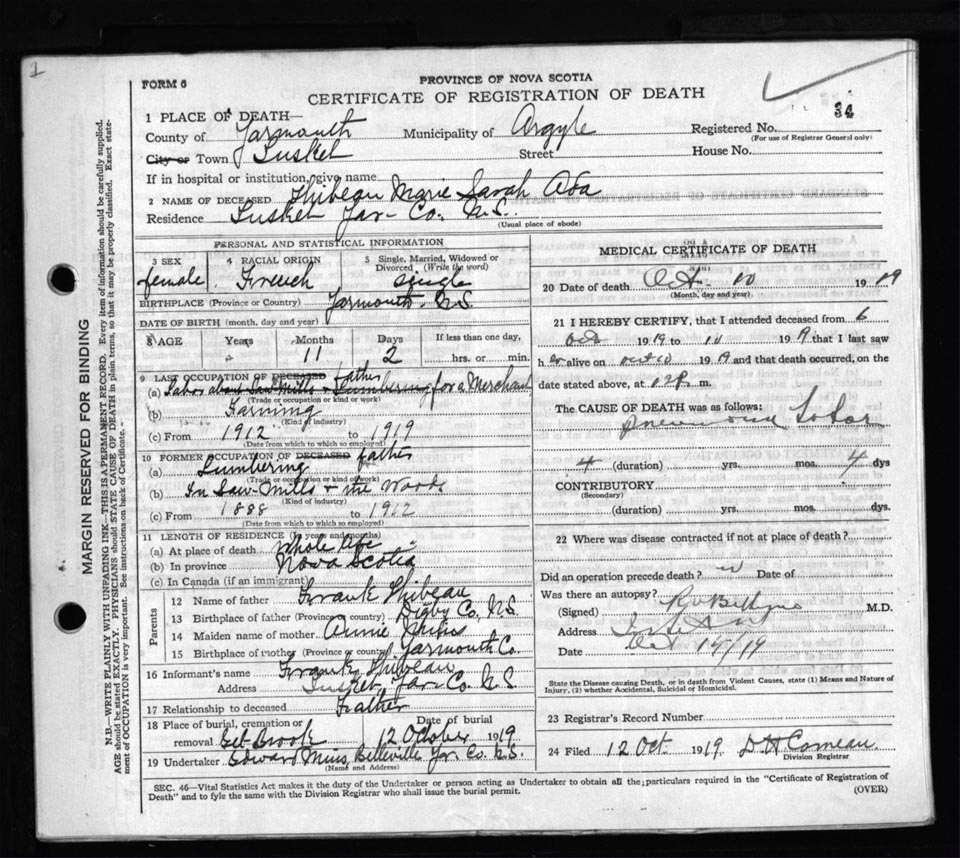 1
FORM 6
PROVINCE OF NOVA SCOTIA
CERTIFICATE OF REGISTRATION OF DEATH
34
1 PLACE OF DEATH—
County of Yarmouth Municipality of Argyle Registered No.
(For use of Registrar General only)
City or Town Tusket Street House No.
If in hospital or institution, give name
2 NAME OF DECEASED Thibeau Marie Sarah Ada
Residence Tusket Yar- Co. N.S.
(Usual place of abode)
PERSONAL AND STATISTICAL INFORMATION
3 SEX female
4 RACIAL ORIGIN French
5 Single, Married, Widowed or Divorced. (Write the word) single
BIRTHPLACE (Province or Country) Yarmouth. N.S.
DATE OF BIRTH (month, day and year)
8 AGE Years Months Days If less than one day,
11 2 hrs. or min.
9 LAST OCCUPATION OF DECEASED father
(a) Labor about Saw Mills + Lumbering for a Merchant
(Trade or occupation or kind of work)
(b) Farming
(Kind of industry)
(c) From 1912 to 1919
(Date from which to which so employed)
10 FORMER OCCUPATION OF DECEASED father
(a) Lumbering
(Trade or occupation or kind of work)
(b) In Saw-Mills + the Woods
(Kind of industry)
(c) From 1888 to 1912
(Date from which to which so employed)
11 LENGTH OF RESIDENCE (In years and months)
(a) At place of death whole life
(b) In province Nova Scotia
(c) In Canada (if an immigrant)
Parents
12 Name of father Frank Thibeau
13 Birthplace of father (Province or country) Digby Co. N.S.
14 Maiden name of mother Annie Mius
15 Birthplace of mother (Province or country) Yarmouth Co.
16 Informant's name Frank Thibeau
Address Tusket Yar- Co. N.S.
17 Relationship to deceased Father
18 Place of burial, cremation or removal Eel-Brook Date of burial 12 October 1919
19 Undertaker Edward Mius, Belleville Yr. Co. N.S.
(Name and Address)
MEDICAL CERTIFICATE OF DEATH
20 Date of death Oct. 10 1919
(Month, day and year)
21 I HEREBY CERTIFY, that I attended deceased from 6
Oct 1919 to 10 1919 that I last saw
h er alive on Oct 10 1919 and that death occurred, on the
date stated above, at m.
The CAUSE OF DEATH was as follows:
Pneumonia Lobar
4 (duration) yrs. mos. 4 dys
CONTRIBUTORY
(Secondary)
(duration) yrs. mos. dys.
22 Where was disease contracted if not at place of death?
Did an operation precede death? Date of
Was there an autopsy?
(Signed) M.D.
Address
Date Oct /19
State the Disease causing Death, or in death from Violent Causes, state (1) Means and Nature of Injury, (2) whether Accidental, Suicidal or Homicidal.
23 Registrar's Record Number
24 Filed 12 Oct. 1919. D H Comeau.
Division Registrar
SEC. 46—Vital Statistics Act makes it the duty of the Undertaker or person acting as Undertaker to obtain all the particulars required in the "Certificate of Registration of
Death" and to fyle the same with the Division Registrar who shall issue the burial permit. (OVER)
MARGIN RESERVED FOR BINDING
N.B.—WRITE PLAINLY WITH UNFADING INK—THIS IS A PERMANENT RECORD. Every item of information should be carefully supplied.
AGE should be stated EXACTLY. PHYSICIANS should STATE CAUSE OF DEATH in plain terms, so that it may be properly classified. Exact statement of OCCUPATION is very important. See instructions on back of Certificate.